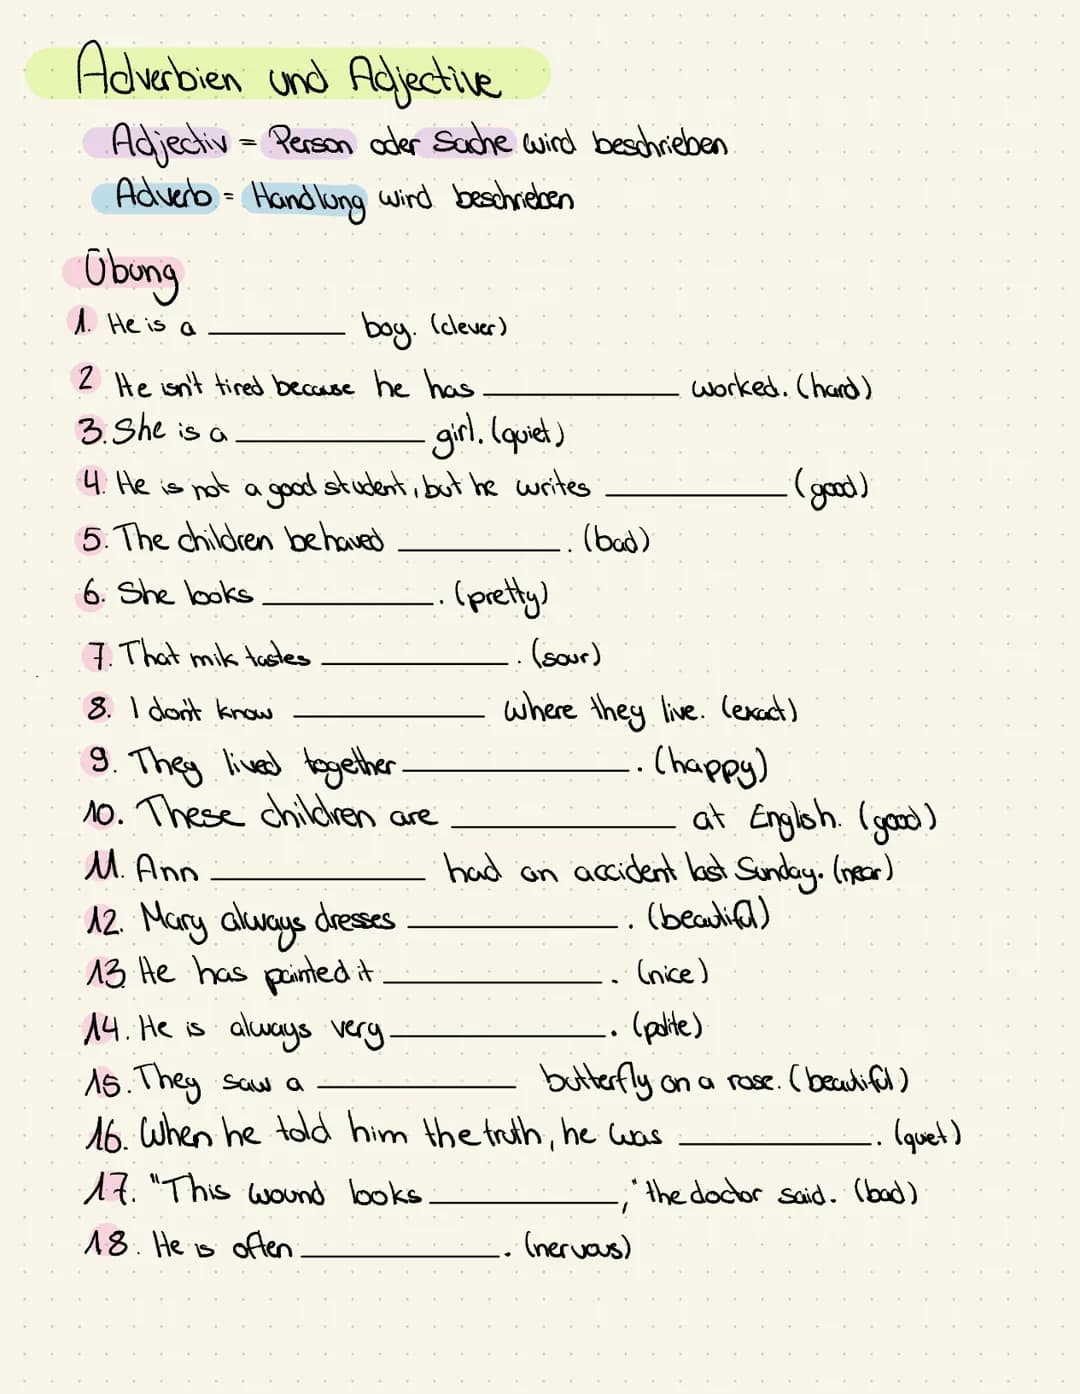 Adverbien und Adjective
Adjectiv = Person oder Sache wird beschrieben
Adverb = Handlung wird beschrieben
Übung
1. He is a ________ boy. (clever)
2 He isn't tired because he has ________ worked. (hard)
3. She is a ________ girl. (quiet)
4. He is not a good student, but he writes ________ (good)
5. The children behaved ________. (bad)
6. She looks ________. (pretty)
7. That mik tastes ________. (sour)
8. I don't know ________ where they live. (exact)
9. They lived together ________. (happy)
10. These children are ________ at English. (good)
11. Ann ________ had an accident last Sunday. (near)
12. Mary always dresses ________. (beautiful)
13. He has painted it ________. (nice)
14. He is always very ________. (polite)
15. They saw a ________ butterfly on a rose. (beautiful)
16. When he told him the truth, he was ________. (quiet)
17. "This wound looks ________," the doctor said. (bad)
18. He is often ________. (nervous)